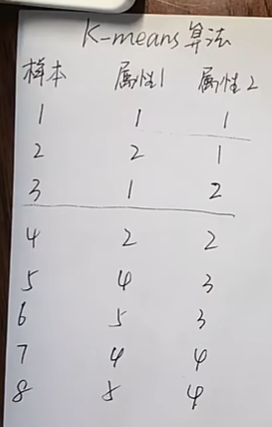 K-means算法
样本 属性1 属性2
1 1 1
2 2 1
3 1 2
4 2 2
5 4 3
6 5 3
7 4 4
8 5 4